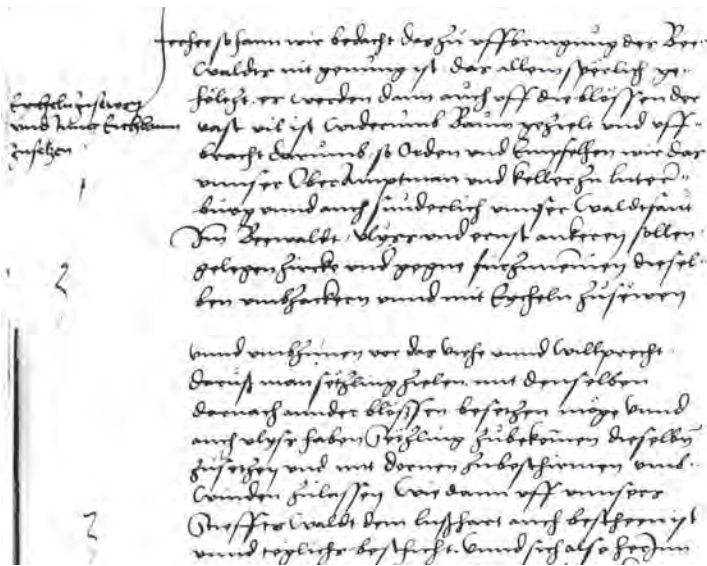 Eycheln zusewen
und Jung Eychbaum
zusetzen
haben wir bedacht das zu uffbringung der Bee-
walder nit genung ist, das allein sperlich ge-
holtzt, er werden dann auch uff die blössen der
vast vil ist widerumb Baum gezielt und uff-
bracht darumb so Orden und Empfelhen wir das
unnser Oberamptman und Keller zu luter-
burg unnd auch sunderlich unnser Waldtfaut
Im Beewaldt, vlyss und ernst ankeren sollen
gelegen zircke und gegne furzunemen diesel-
ben umbzackern unnd mit Eycheln zusewen
unnd umbzunen vor das viehe unnd Willprecht
daruss man setzling zielen unnd denselben
darnach annder blössen besetzen möge Unnd
auch vlyss haben Setzling zubekomen dieselbn
zusetzen und mit dornen zubeschirmen umb-
winden zulassen Wie dann uff unnsers
Stieffts Waldt dem lusshart auch bescheen ist
unnd teglichs beschicht. Unnd sich also